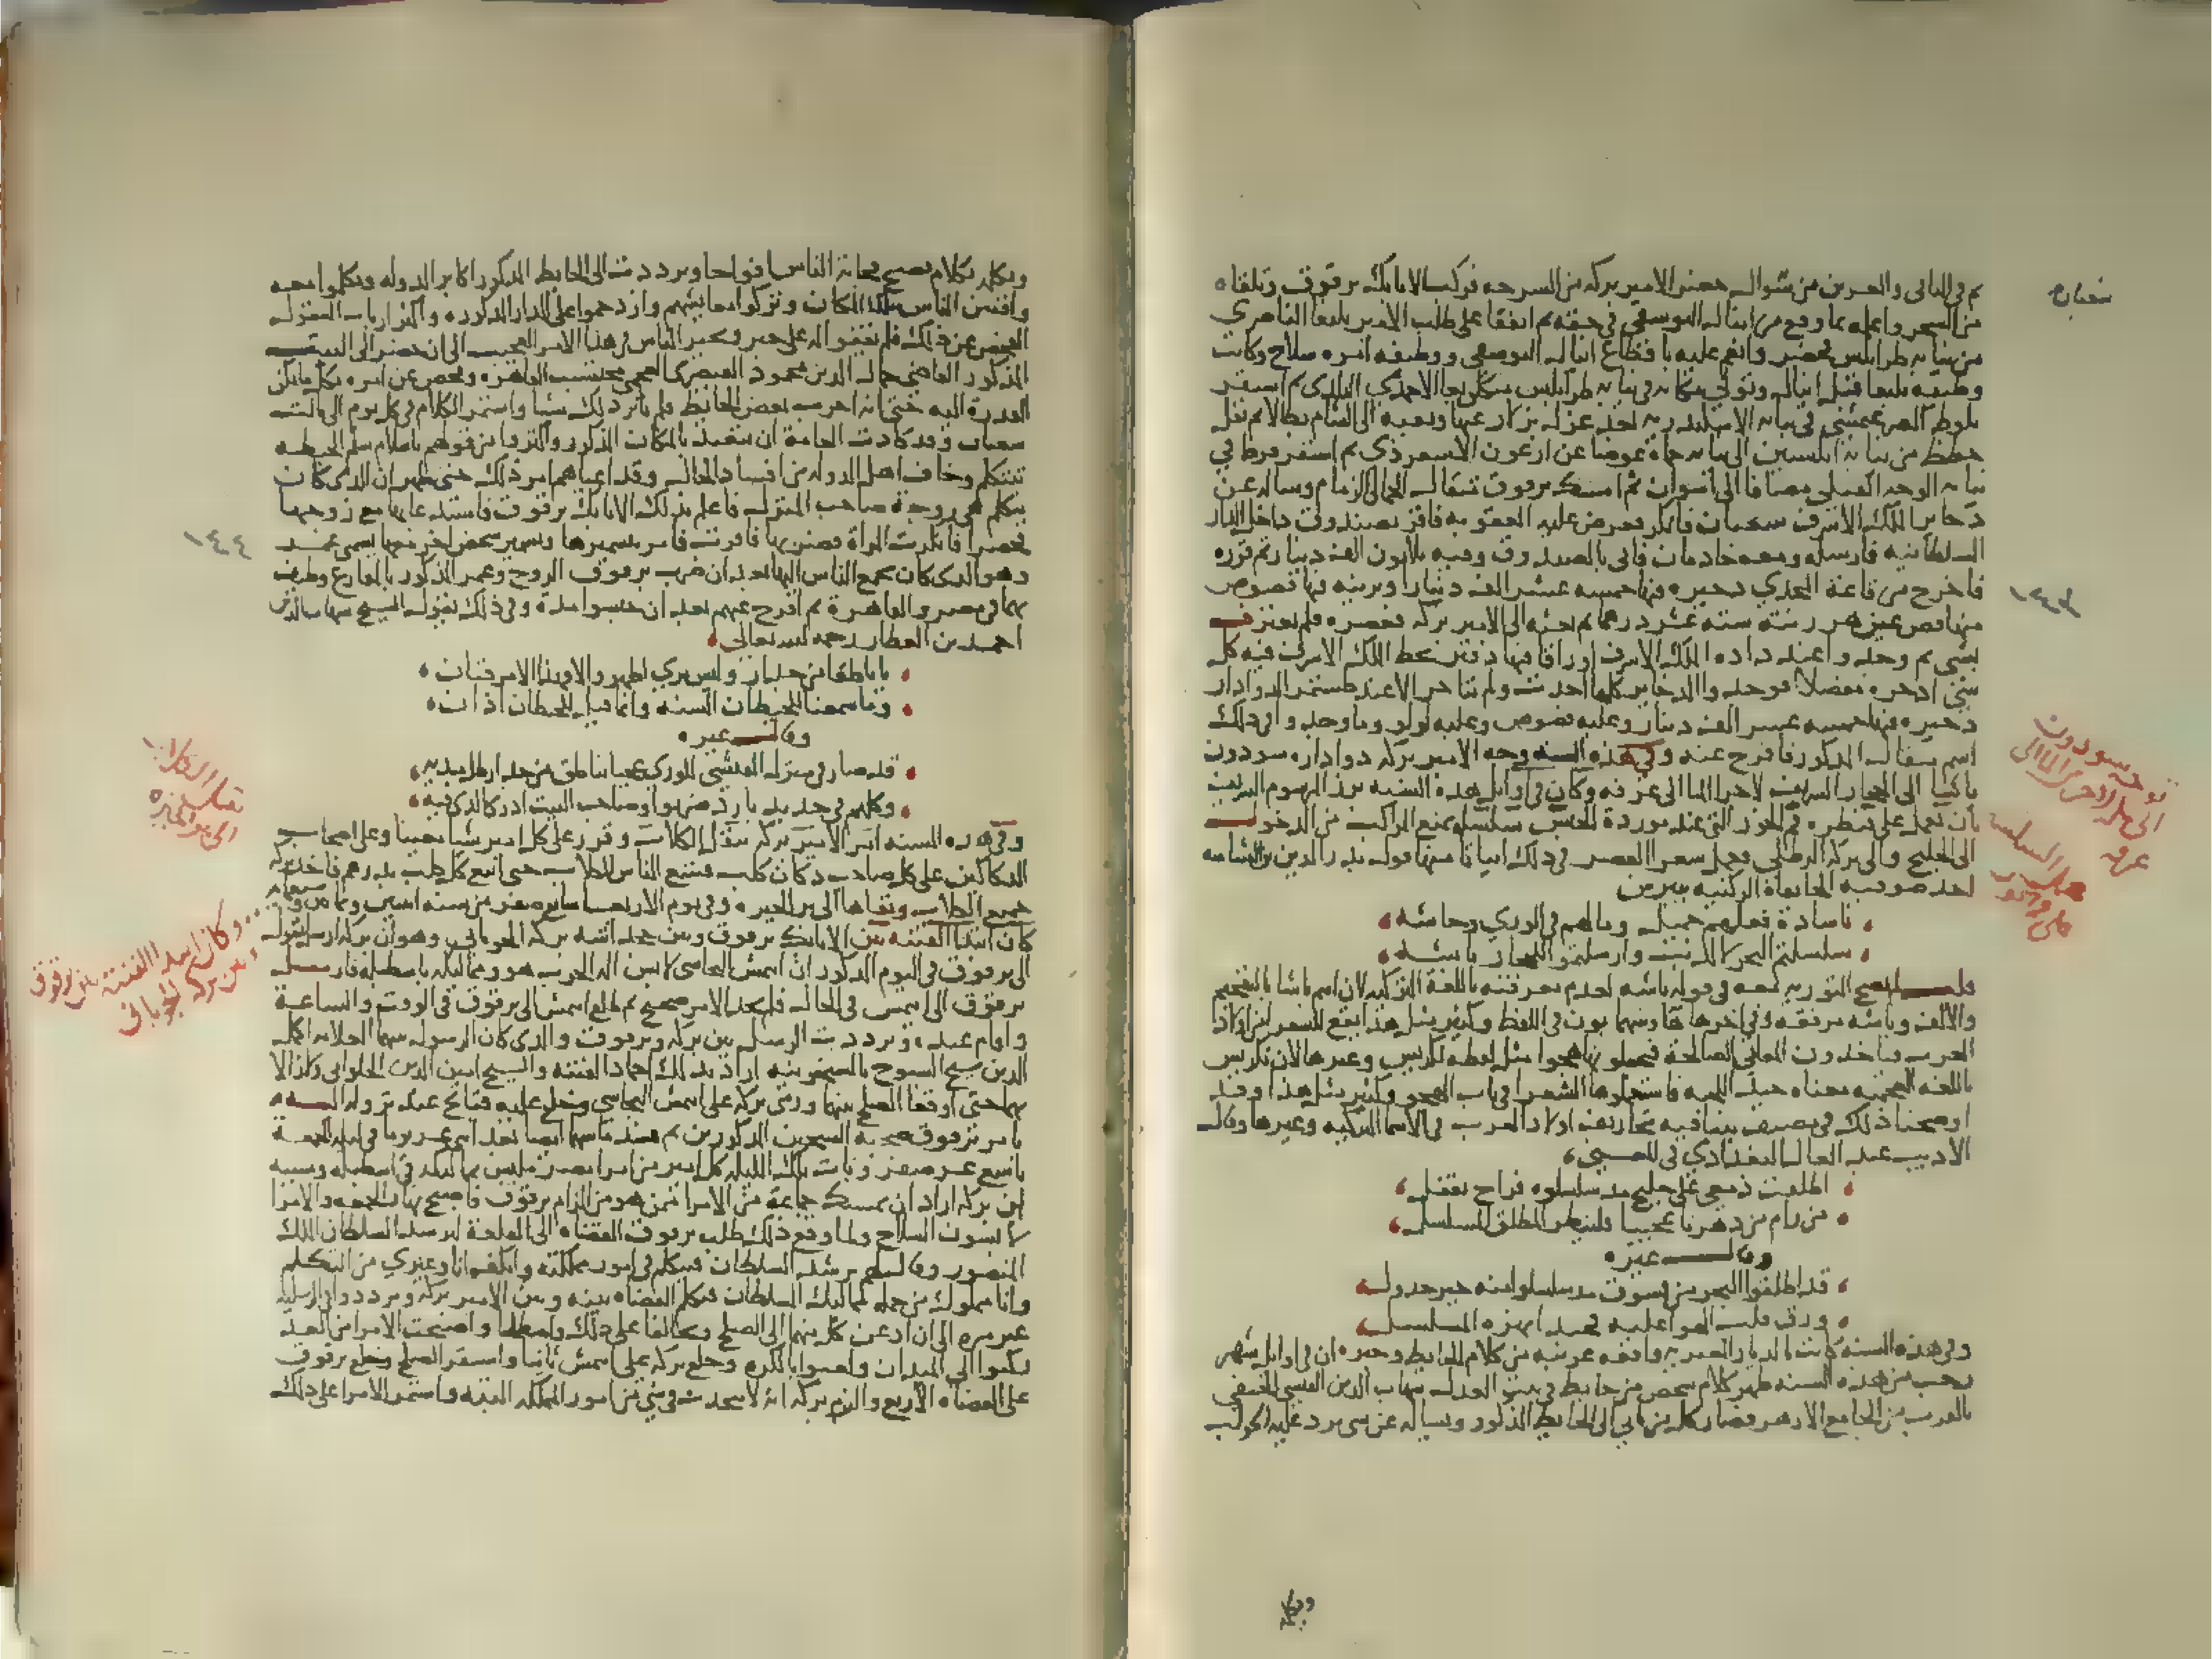 ثم في الثاني والعشرين من شوال حضر الامير بركه من السرحه فركب الاتابك برقوق وتلقاه
من البحر واعلمه بما وقع من اينال اليوسفي في حقه ثم اتفقا على طلب الامير يلبغا الناصري
من نيابه طرابلس فحضر وانعم عليه باقطاع اينال اليوسفي ووظيفه امره سلاح وكانت
وظيفه يلبغا قبل اينال وتولي مكانه في نيابه طرابلس منكلي بغا الاحمدي البلدي ثم استقر
بلوط الصرغتمشي في نيابه الاسكندريه بعد عزل بزلار عنها ونفيه الى الشام بطالا ثم نقل
حطط من نيابه ابلستين الى نيابه حماة عوضا عن ارغون الاسعردي ثم استقر قرط في
نيابه الوجه القبلي مضافا الى اسوان ثم امسك برقوق مثقال الجمالي الزمام وساله عن
ذخاير الملك الاشرف شعبان فانكر فعرض عليه العقوبه فاقر بصندوق داخل الدار
السلطانيه فارسله ومعه خادمان فاتي بالصندوق وفيه ثلاثون الف دينار ثم قرره
فاخرج من قاعة المجدي ذخيره فيها خمسه عشر الف دينار وبرنيه فيها فصوص
منها فص عين هر زنته ستة عشر درهما ثم بعثه الى الامير بركه فعصره فلم يعترف
بشي ثم وجد عند داده الملك الاشرف اوراقا فيها دفتر بخط الملك الاشرف فيه كل
شي ادخره مفصلا فوجد الذخاير كلها اخذت ولم يتاخر الا عند طشتمر الدوادار
ذخيره فيها خمسه عشر الف دينار وعلبه فصوص وعلبه لولو وما وجد في ذلك
اسم مثقال المذكور فافرج عنه وفي هذه السنه وجه الامير بركه دواداره سودون
باشا الى الحجاز الشريف لاجرا الما الى عرفه وكان في اوايل هذه السنه برز المرسوم الشريف
بان يعمل على قنطره فم الخور التي عند موردة الجبس سلسله تمنع المراكب من الدخول
الى الخليج والى بركه الرطلي فعمل شعرا العصر في ذلك ابياتا منها قول بدر الدين بن الشاميه
احد صوفيه الخانقاه الركنيه بيبرس
يا سادة فعلهم جميل وما لهم في الوري وحاشه
سلسلتم البحر لا لذنب وارسلتم للحجاز باشه
والالف وباشه مرققه وفي اخرها ها وبينهما بون في اللفظ وكثير مثل هذا يقع للشعرا
اوضحنا ذلك في مصنف بينا فيه تحاريف اولاد العرب في الاسما التركيه وغيرها وقال
الاديب عبد العال البغدادي في المعني
اطلقت دمعي على خليج مذ سلسلوه فراح يقفل
من رام من دهرنا عجيبا فلينظر المطلق المسلسل
وقال غيره
قد اطلقوا البحر من فسوق مذ سلسلوا منه خير جدول
ورق قلب الهوا عليه فجيدا نهره المسلسل
وفي هذه السنه كانت بالديار المصريه واقعه غريبه من كلام الحايط وخبره ان في اوايل شهر
رجب من هذه السنه ظهر كلام شخص من حايط في بيت العدل شهاب الدين الفيشي الحنفي
بالقرب من الجامع الازهر فصار كل من ياتي الى الحايط المذكور ويساله عن شي يرد عليه الجواب
شعبان
١٤٣
توجه سودون
الى عرفه
عمل السلسله
ويكلمه
ويكلمه بكلام فصيح فجاته الناس افواجا وترددت الى الحايط المذكور اكابر الدوله وتكلموا معه
وافتتن الناس بذلك المكان وتركوا معايشهم وازدحموا على الدار المذكوره واكثر ارباب العقول
الفحص عن ذلك فلم يقفوا له على خبر وتحير الناس في هذا الامر العجيب الى ان حضر الى البيت
المذكور القاضي جمال الدين محمود القيصري العجمي محتسب القاهره وفحص عن امره بكل ما يمكن
القدرة اليه حتى انه اخرب بعض الحايط فلم يوثر ذلك شيا واستمر الكلام في كل يوم الى ثالث
شعبان وقد كادت العامة ان تتعبد بالمكان المذكور واكثروا من قولهم يا سلام سلم الحيطه
تتكلم وخاف اهل الدوله من افساد الحال وقد اعياهم امر ذلك حتى ظهر ان الذي كان
يتكلم هي زوجة صاحب المنزل فاعلم بذلك الاتابك برقوق فاستدعا بها مع زوجها
فحضرا فانكرت المراة فضربها فاقرت فامر بتسميرها وتسمير شخص اخر معها يسمى عمر
وهو الذي كان يجمع الناس اليها بعد ان ضرب برقوق الزوج وعمر المذكور بالمقارع وطيف
بهما في مصر والقاهرة ثم افرج عنهم بعد ان حبسوا مدة وفي ذلك يقول الشيخ شهاب الدين
احمد بن العطار رحمه الله تعالى
يا ناطقا من جدار وليس يري اظهر والا فهذا الامر فتان
وما سمعنا للحيطان السنه وانما قيل للحيطان اذان
وقال غيره
قد صار في منزل الفيشي الوري عجبا بناطق من جدار ظل يبديه
وكلهم في حديد بارد ضربوا وصاحب البيت ادرى بالذي فيه
وفي هذه السنه امر الامير بركه بنقل الكلاب وقرر على كل امير شيا معينا وعلى اصحاب
الدكاكين على كل صاحب دكان كلب فتتبع الناس الكلاب حتى ابيع كل كلب بدرهم فاخذ بركه
جميع الكلاب ونفاها الى بر الجيزه وفي يوم الاربعا سابع صفر من سنه اثنين وثمانين وسبعمايه
كان ابتدا الفتنه بين الاتابك برقوق وبين خجداشه بركه الجوباني وهو ان بركه ارسل يقول
الى برقوق في اليوم المذكور ان ايتمش البجاسي لابس اله الحرب هو ومماليكه باسطبله فارسل
برقوق الى ايتمش في الحال فلم يجد الامر صحيح ثم طلع ايتمش الى برقوق في الوقت والساعة
واقام عنده وترددت الرسل بين بركه وبرقوق والذي كان الرسول بينهما العلامه اكمل
الدين شيخ الشيوخ بالشيخونيه اراد بذلك اخماد الفتنه والشيخ امين الدين الحلواني وما زالا
بهما حتى اوقعا الصلح بينهما ورضي بركه على ايتمش البجاسي وخلع عليه
تاسع عشر صفر وبات تلك الليله كل امير من امرا مصر ملبس مماليكه في اسطبله وسببه
ان بركه اراد ان يمسك جماعة من الامرا ممن هو من الزام برقوق فاصبح نهار الجمعه والامرا
لابسون السلاح ولما وقع ذلك طلب برقوق القضاه الى القلعة ليرشد السلطان الملك
المنصور وقال لهم نرشد السلطان فيتكلم في امور مملكته وانكف انا وغيري من التكلم
وانا مملوك من جمله مماليك السلطان فتكلم القضاه بينه وبين الامير بركه وترددوا في الرسليه
غير مره الى ان اذعن كل منهما الى الصلح وتحالفا على ذلك واصطلحا واصبحت الامرا من الغد
ركبوا الى الميدان ولعبوا بالكره وخلع بركه على ايتمش ثانيا واستقر الصلح وخلع برقوق
على القضاه الاربع والتزم بركه انه لا يتحدث في شي من امور المملكه البته واستمر الامرا على ذلك
١٤٤
نقل الكلاب
الى بر الجيزه
وكان ابتدا الفتنه بين برقوق
وبين بركه الجوباني